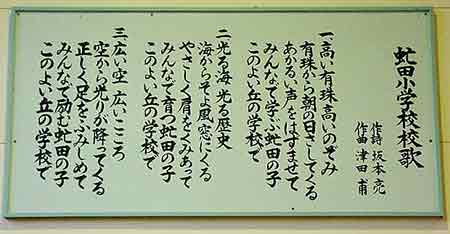 虻田小学校校歌
作詩 坂本 亮
作曲 津田 甫
一、高い有珠 高いのぞみ
有珠から朝の日さしてくる
あかるい声をはずませて
みんなで学ぶ虻田の子
このよい丘の学校で
二、光る海 光る歴史
海からそよ風 窓にくる
やさしく肩をくみあって
みんなで育つ虻田の子
このよい丘の学校で
三、広い空 広いこころ
空から光りが降ってくる
正しく足をふみしめて
みんなで励む虻田の子
このよい丘の学校で